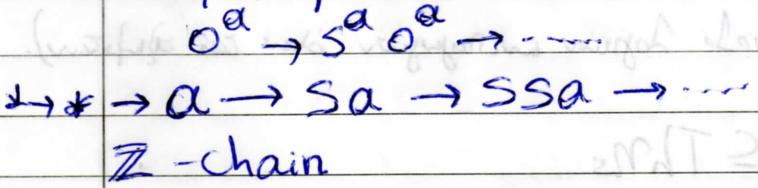 0^a → s^a 0^a → ......
* → * → a → Sa → SSa → ......
ℤ-chain